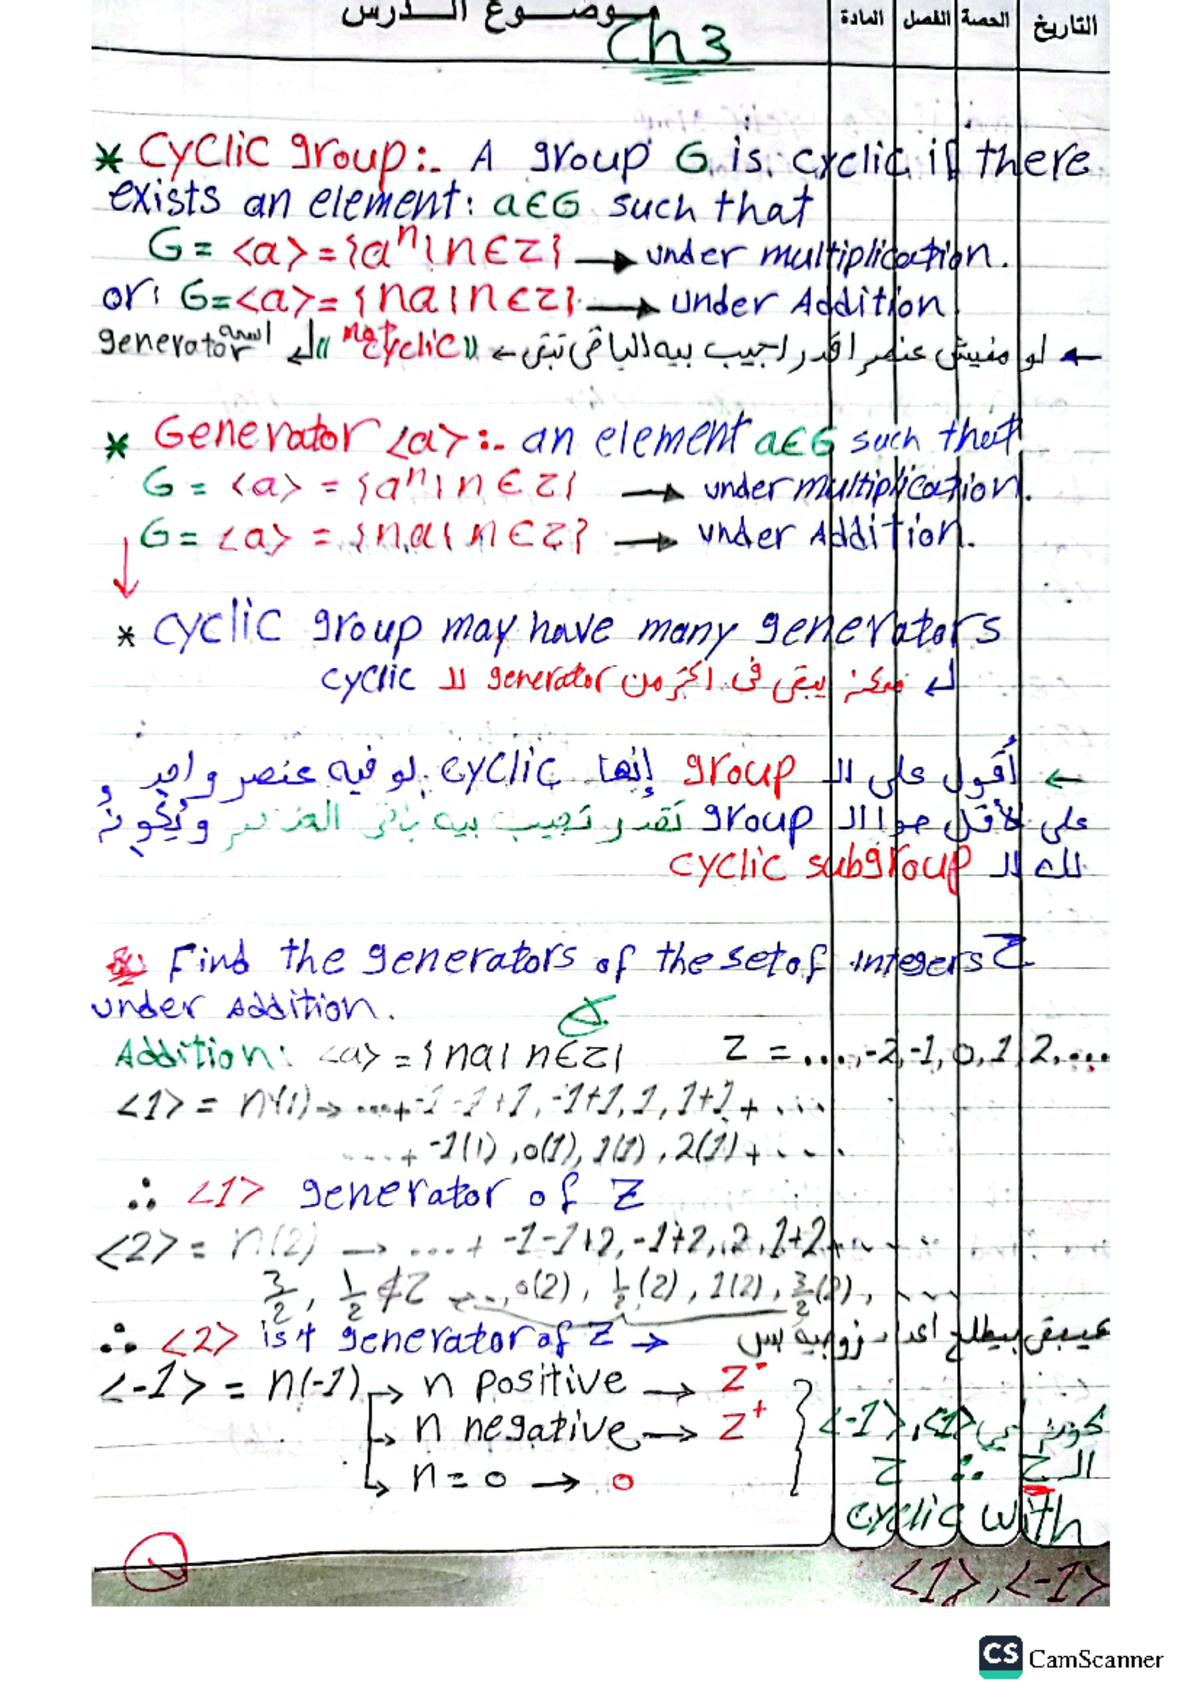 التاريخ الحصة الفصل المادة موضوع الدرس
Ch 3
* Cyclic group:- A group G is cyclic if there
exists an element: a∈G such that
G = <a> = {aⁿ | n∈Z} → under multiplication.
or: G=<a>= {na | n∈Z} → under Addition
← لو مفيش عنصر اقدر اجيب بيه الباقي تبقى ← «not cyclic» ل اسمه
generator
* Generator <a>:- an element a∈G such that
G = <a> = {aⁿ | n∈Z} → under multiplication.
G = <a> = {na | n∈Z} → under Addition.
* cyclic group may have many generators
ممكن يبقى في اكتر من generator لل cyclic
← أقول على ال group إنها cyclic لو فيه عنصر واحد
على الأقل جوا ال group تقدر تجيب بيه باقي ويكون
لك ال cyclic subgroup
Find the generators of the set of integers Z
under Addition.
Addition: <a> = {na | n∈Z} Z = ...,-2,-1,0,1,2,...
<1> = n(1) → ...+-1-1+1,-1+1,1,1+1+...
...+ -1(1) ,0(1), 1(1) ,2(1)+...
∴ <1> generator of Z
<2> = n(2) → ...+ -1-1+2,-1+2,2,1+2+...
3/2 , 1/2 ∉ Z ← ...,0(2) , 1/2(2) , 1(2) , 3/2(2) , ...
∴ <2> isn't generator of Z → هيبقى بيطلع أعداد زوجية بس
<-1> = n(-1) → n positive → Z⁻
→ n negative → Z⁺ <-1> ,<1>
→ n = 0 → 0 ال Z ∴ Z
cyclic with
<1>, <-1>
CS CamScanner